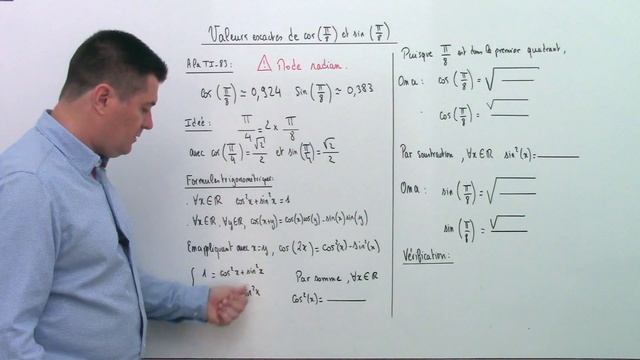 Valeurs exactes de cos(π/8) et sin(π/8)
A la TI-83: ⚠ Mode radian.
cos(π/8) ≃ 0,924 sin(π/8) ≃ 0,383
Idée: π/4 = 2 x π/8
avec cos(π/4) = √2/2 et sin(π/4) = √2/2
Formules trigonométriques:
∀x∈ℝ cos²x + sin²x = 1
∀x∈ℝ, ∀y∈ℝ, cos(x+y) = cos(x)cos(y) - sin(x)sin(y)
En appliquant avec x=y, cos(2x) = cos²(x) - sin²(x)
{ 1 = cos²x + sin²x
sin²x
Par somme, ∀x∈ℝ
cos²(x) =
Puisque π/8 est dans le premier quadrant,
On a: cos(π/8) = √
cos(π/8) = √
Par soustraction, ∀x∈ℝ sin²(x) =
On a: sin(π/8) = √
sin(π/8) = √
Vérification: